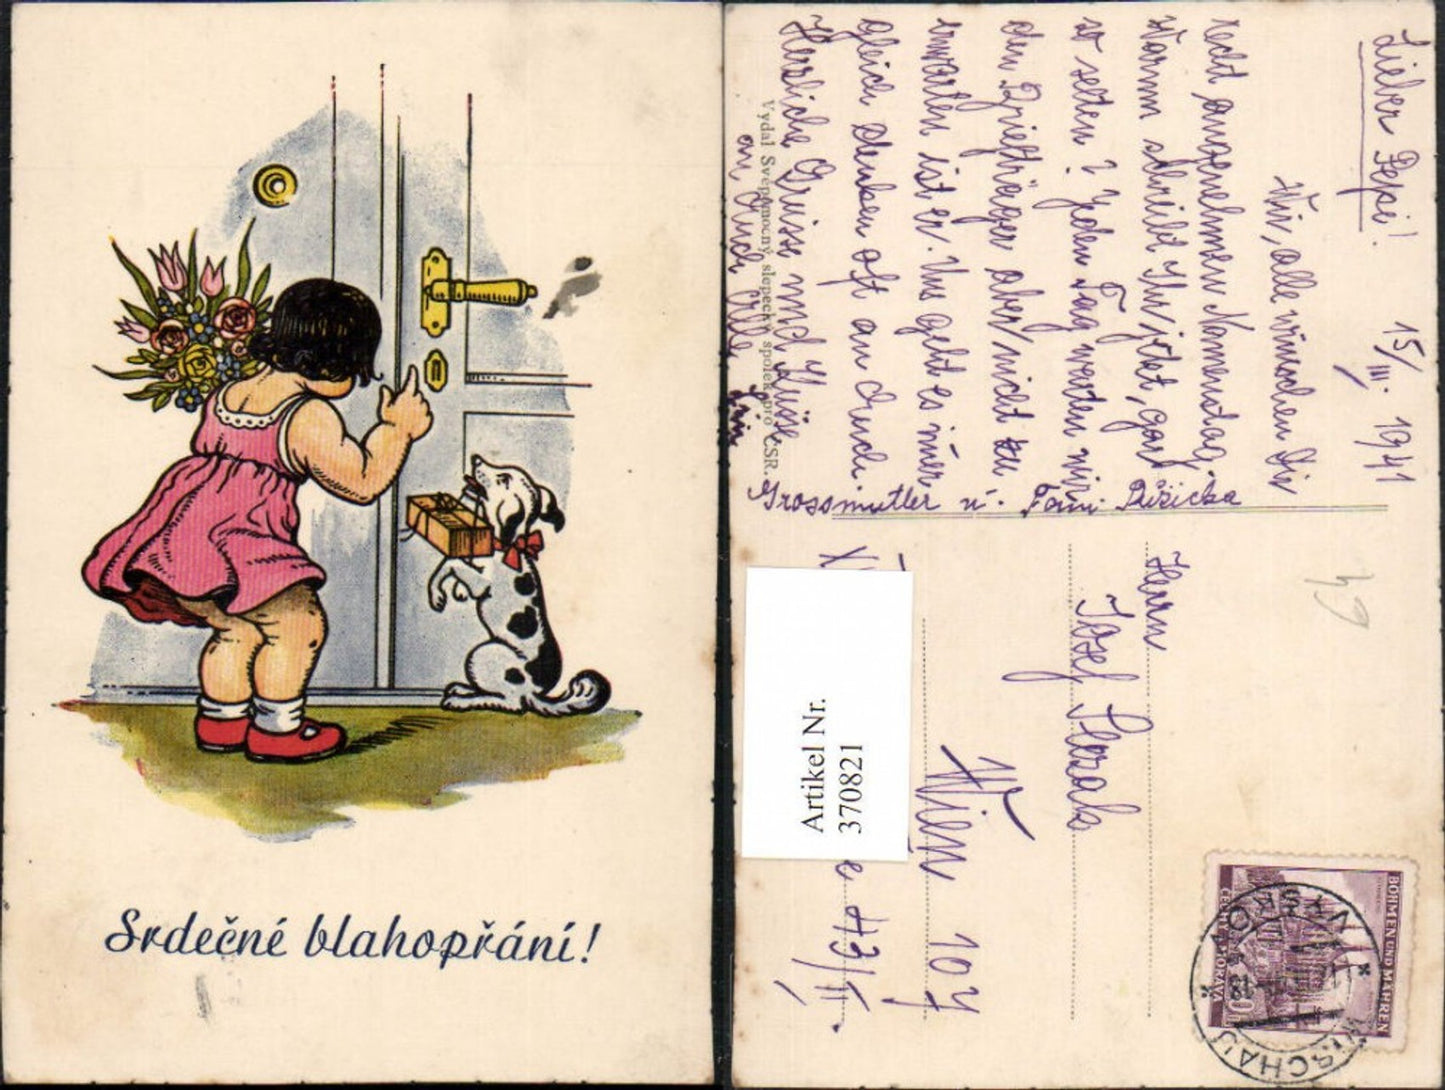 Srdečné blahopřání!
15/III. 1941
Lieber Pepi!
Wir, alle wünschen Dir
recht angenehmen Namenstag.
Warum schreibt Ihr jetzt, gar
so selten? Jeden Tag warten wir
den Briefträger aber nicht zu
erwarten ist er. Uns geht es immer
gleich denken oft an Euch.
Herzliche Grüsse und Küsse
an Euch Alle
Grossmutter u. Fam. Růžička
Vydal Svépomocný slepecký spolek pro ČSR.
64
Herrn
Josef
Wien 107
43/II.
Artikel Nr.
370821
BÖHMEN UND MÄHREN
ČECHY A MORAVA
VYŠKOV
WISCHAU